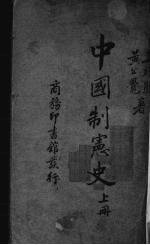 黃公覺著
中國制憲史上冊
商務印書館發行